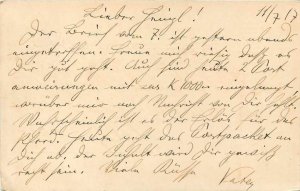 11/7 17
Lieber Heinzl!
Der Brief vom 7. ist gestern abends
eingetroffen. Freue mich riesig daß es
Dir gut geht. Auch sind heute 2 Post
anweisungen mit K eingelangt
worüber mir noch Nachricht von Dir fehlt.
Wahrscheinlich ist es der Erlös für das
Pferd. Heute geht das Postpacket an
Dich ab. Der Inhalt wird Dir gewiß
recht sein. Viele Küsse
Vater